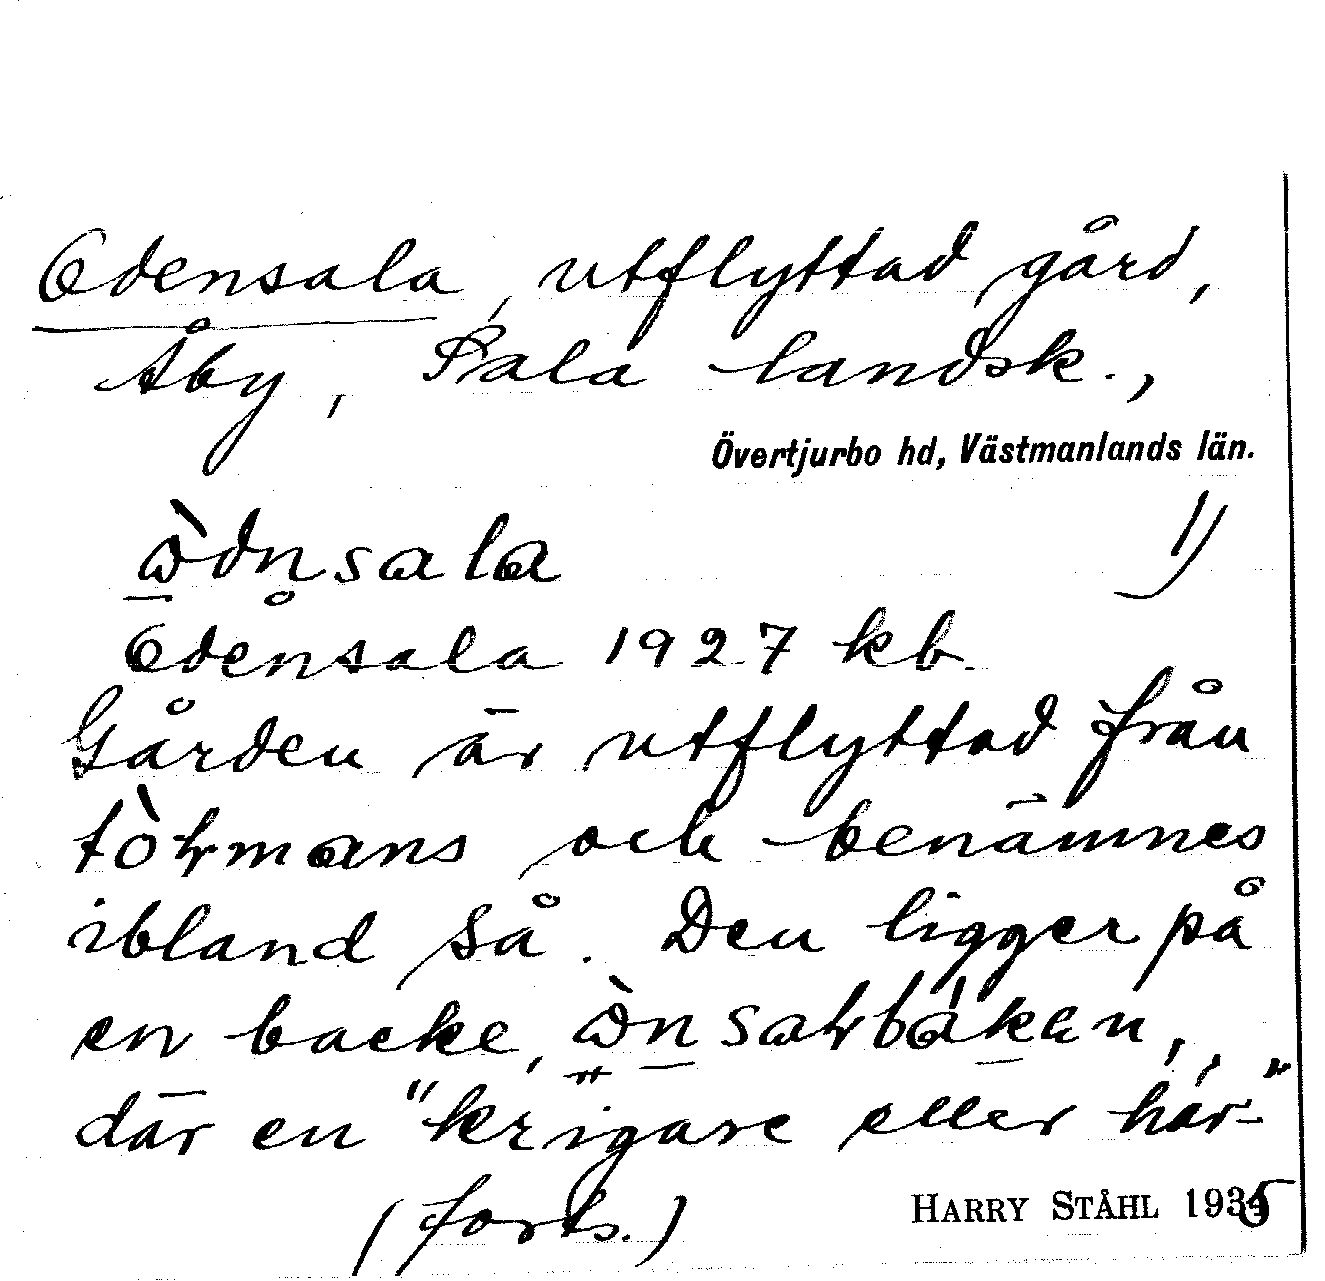 Odensala, utflyttad gård,
Åby, Sala landsk.,
Övertjurbo hd, Västmanlands län.
1)
Odensala 1927 kb.
Gården är utflyttad från
och benämnes
ibland så. Den ligger på
en backe,
där en "krigare eller här-"
(forts.)
HARRY STÅHL 1935